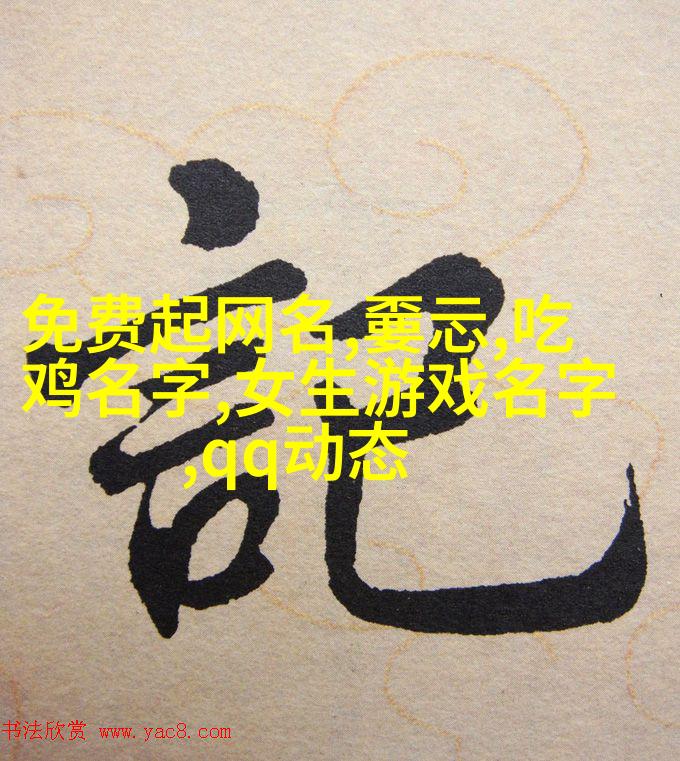 記
免费起网名,嫑忈,吃
鸡名字,女生游戏名字
,qq动态
书法欣赏 www.yac8.com